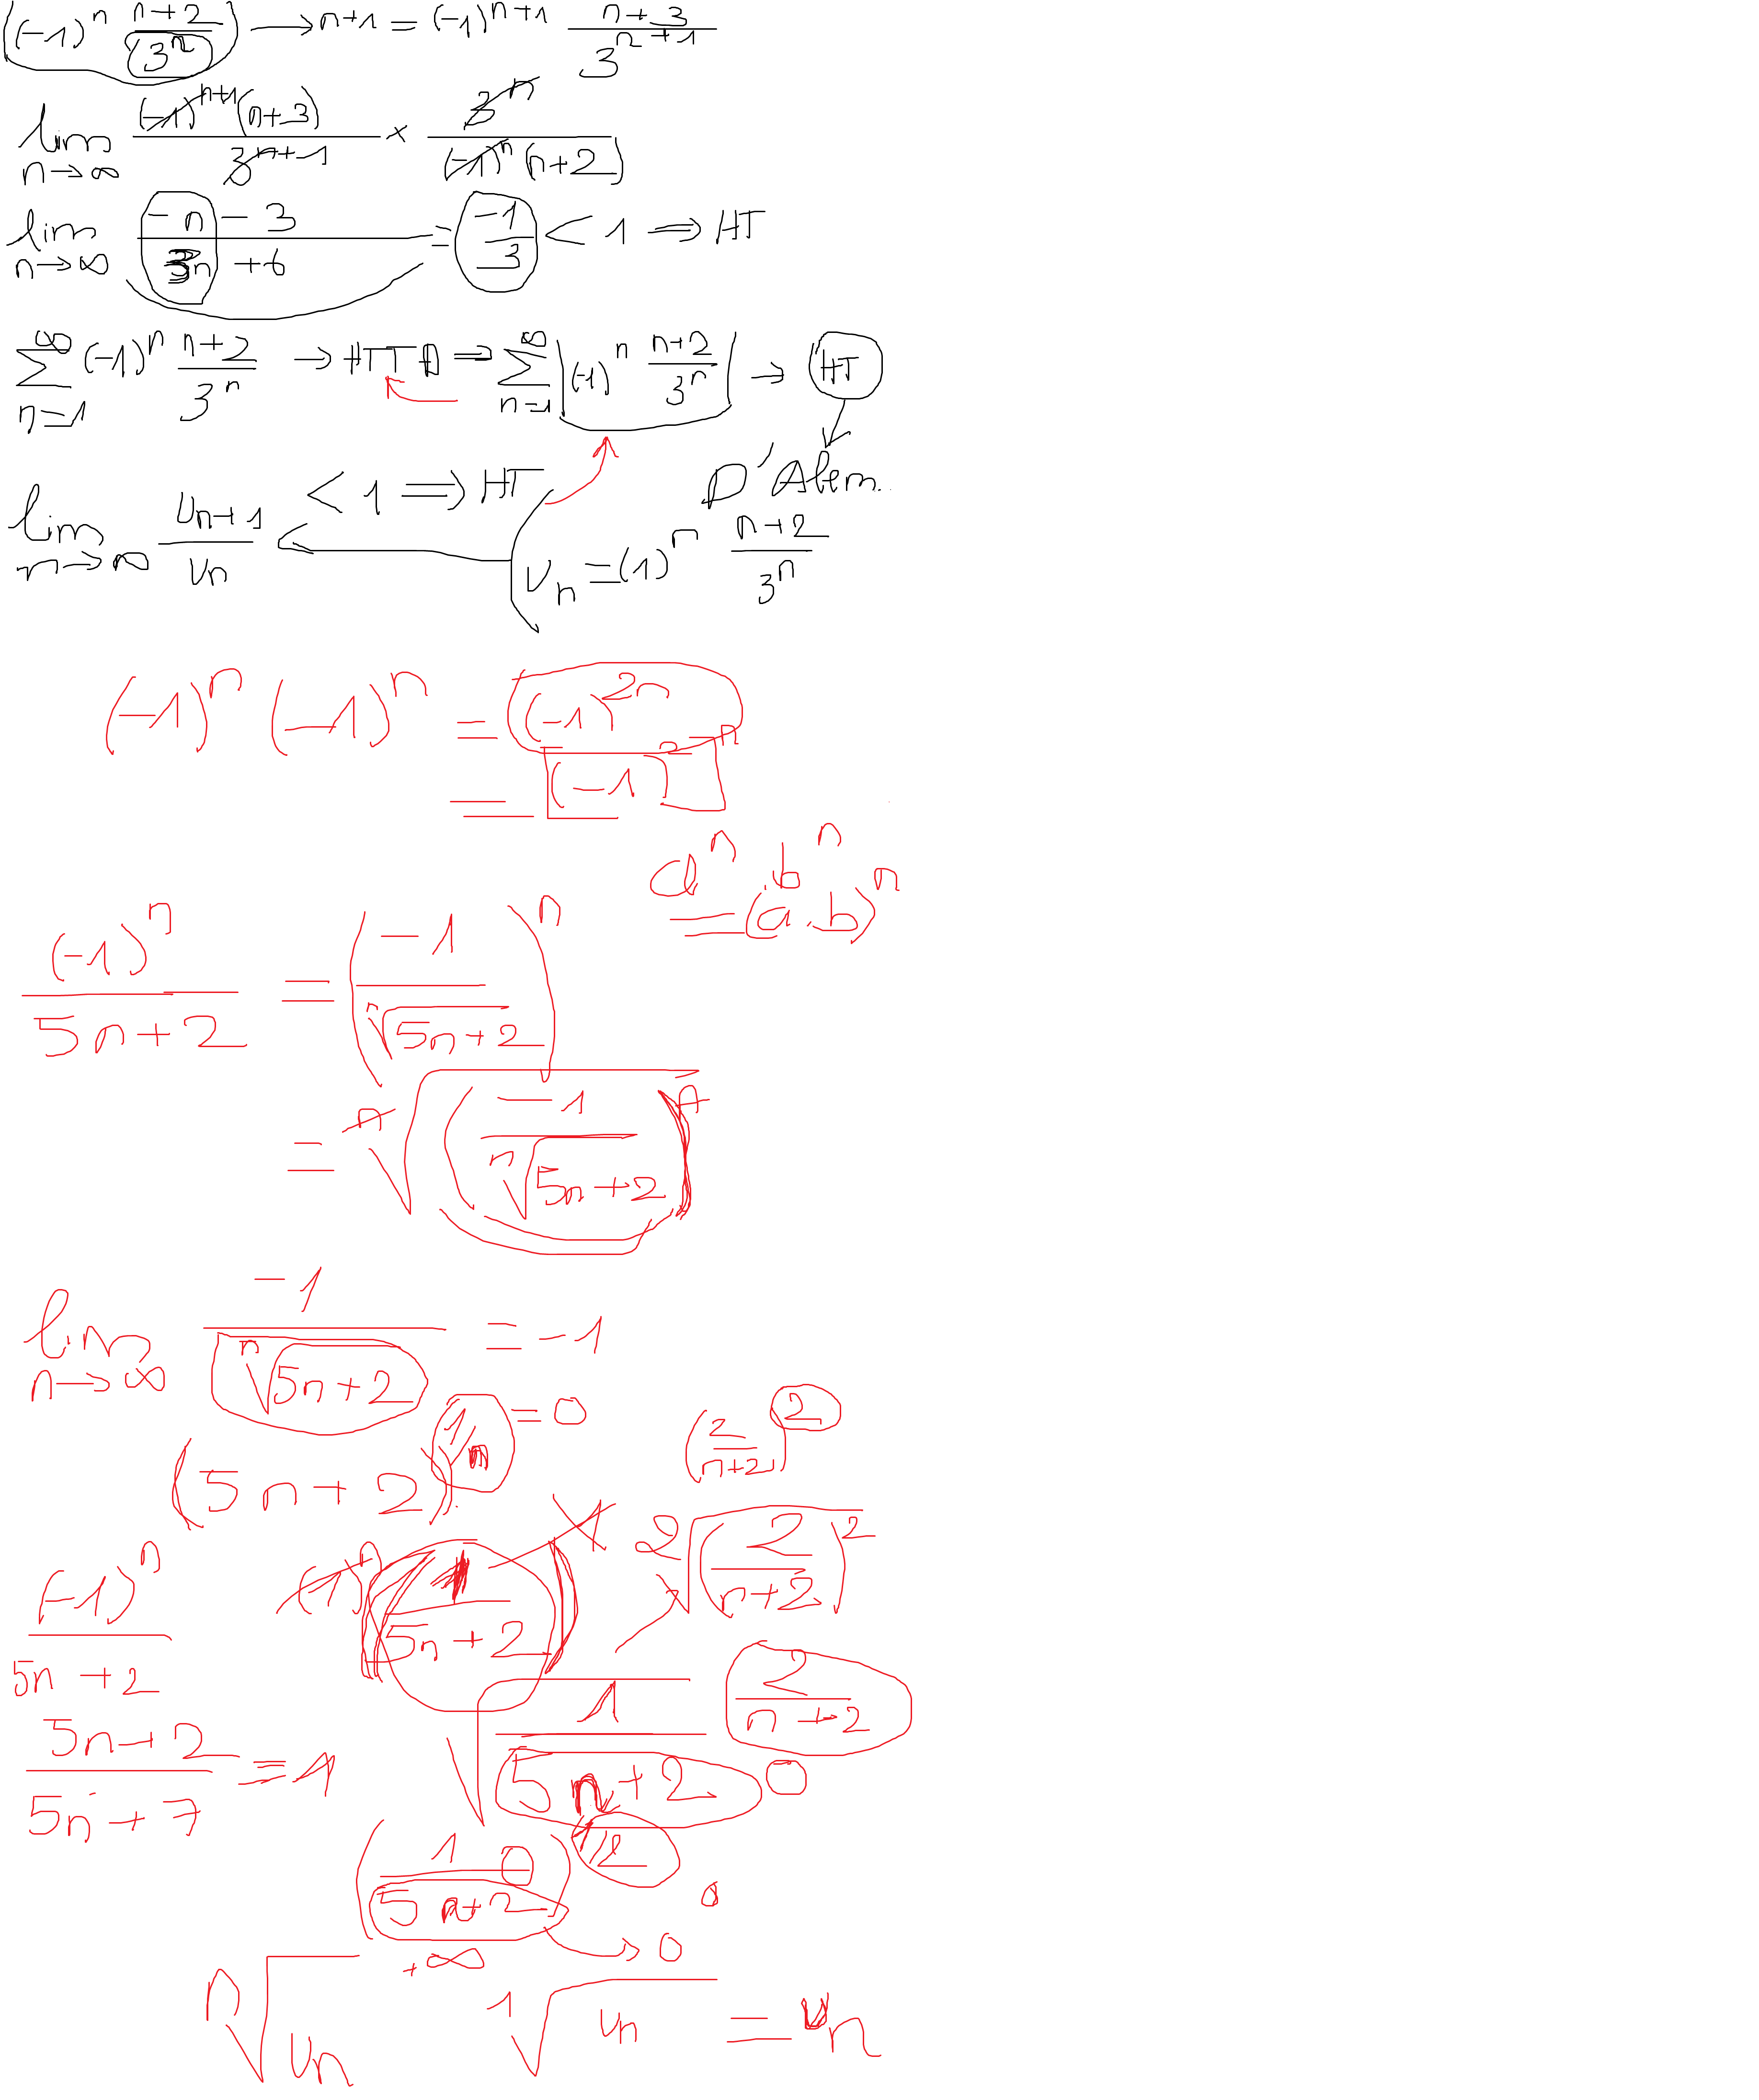 (-1)^n (n+2)/(3^n) → n+1 = (-1)^(n+1) (n+3)/(3^(n+1))
lim n→∞ ((-1)^(n+1) (n+3))/(3^(n+1)) × (3^n)/((-1)^n (n+2))
lim n→∞ (-n-3)/(3n+6) = (-1)/3 < 1 ⇒ HT
∑_{n=1}^∞ (-1)^n (n+2)/(3^n) → HTTĐ ⇒ ∑_{n=1}^∞ |(-1)^n (n+2)/(3^n)| → HT
D'Alem.
lim n→∞ U_{n+1}/U_n < 1 ⇒ HT
U_n = (1)^n (n+2)/(3^n)
(-1)^n (-1)^n = (-1)^(2n)
= (-1)^2 n
a^n . b^n
= (a.b)^n
(-1)^n/(5n+2) = (-1/ⁿ√(5n+2))^n
= ⁿ√((-1/ⁿ√(5n+2))^n)
lim n→∞ -1/ⁿ√(5n+2) = -1
(5n+2)^(1/n) = 0
(2/(n+2))^2
²√((2/(n+2))^2)
(-1)^n/(5n+2)
(1)^n (1/(5n+2))
√(1/(5n+2))
2/(n+2)
0
(5n+2)/(5n+7) = 1
(1/(5n+2))^(1/2)
0
0
→ 0
+∞
ⁿ√U_n
¹√U_n = U_n